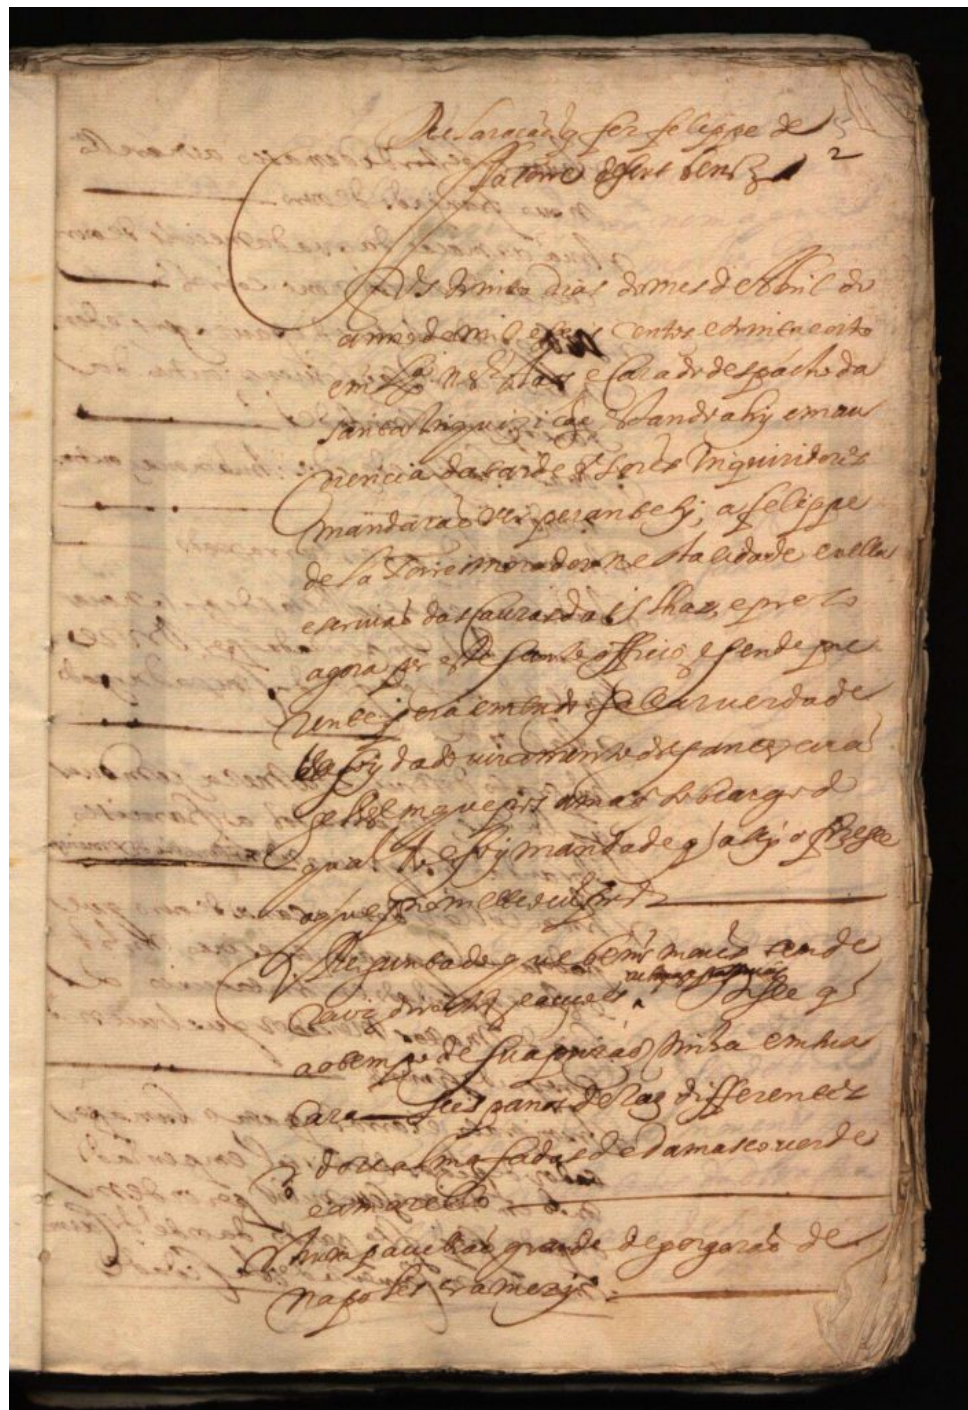 Declaração q̃ fez felippe de
la torre de seus beñs
5
2
Aos sinco dias do mes de Abril do
anno de mil e seis centos e trinta e oito
em Lxª nos estaos e casa do despacho da
santa Inquizição estando ahy em au
diencia da tarde os sñores Inquisidores
mandarão vir perante sy, a felippe
de la Torre morador nesta cidade e
escrivão das da Ilhas, e prezo
agora por este santo officio, e sendo pre
zente, pera em tudo fallar verdade
lhe foy dado juramento dos santos evã
gelhos em que pos a mão sob cargo do
qual lhe foy mandado q̃ assy o fizesse
o que prometteo cumprir
Perguntado que beñs moveis ou de
raiz disse q̃
ao tempo de sua prizão tinha em sua
caza seis panos de Raz differentes
doze almofadas de damasco verde
e amarello
hum pavelhão grande de gorgorão de
napoles cramezy